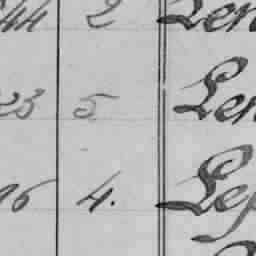 44 2 Len
23 5 Len
16 4. Lep